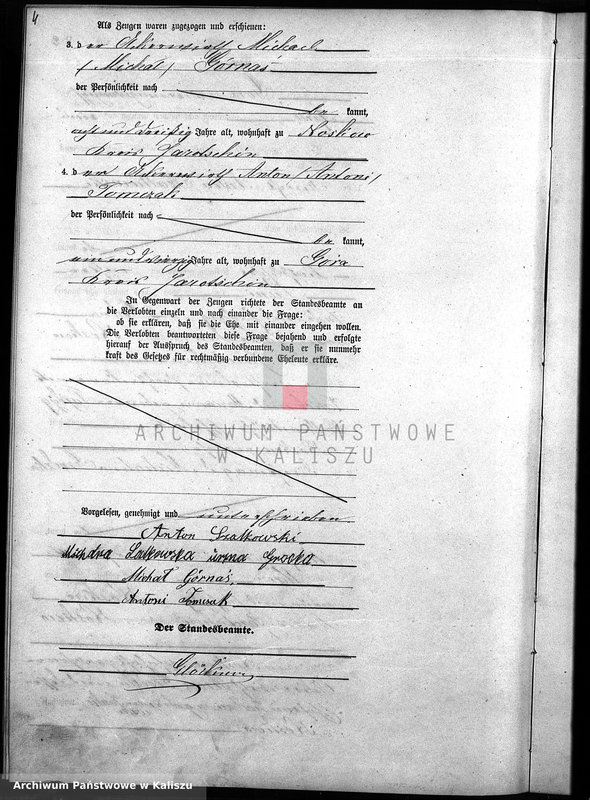 4
Als Zeugen waren zugezogen und erschienen:
3. der Ackerwirth Michael
(Michał) Górnaś
der Persönlichkeit nach
be kannt,
acht und dreißig Jahre alt, wohnhaft zu Noskow
Kreis Jarotschin
4. der Ackerwirth Anton (Antoni)
Tomczak
der Persönlichkeit nach
be kannt,
ein und vierzig Jahre alt, wohnhaft zu Gora
Kreis Jarotschin
In Gegenwart der Zeugen richtete der Standesbeamte an
die Verlobten einzeln und nach einander die Frage:
ob sie erklären, daß sie die Ehe mit einander eingehen wollen.
Die Verlobten beantworteten diese Frage bejahend und erfolgte
hierauf der Ausspruch des Standesbeamten, daß er sie nunmehr
kraft des Gesetzes für rechtmäßig verbundene Eheleute erkläre.
ARCHIWUM PAŃSTWOWE
W KALISZU
Vorgelesen, genehmigt und unterschrieben
Anton Szatkowski
Grocka
Michał Górnaś
Antoni Tomczak
Der Standesbeamte.
Archiwum Państwowe w Kaliszu